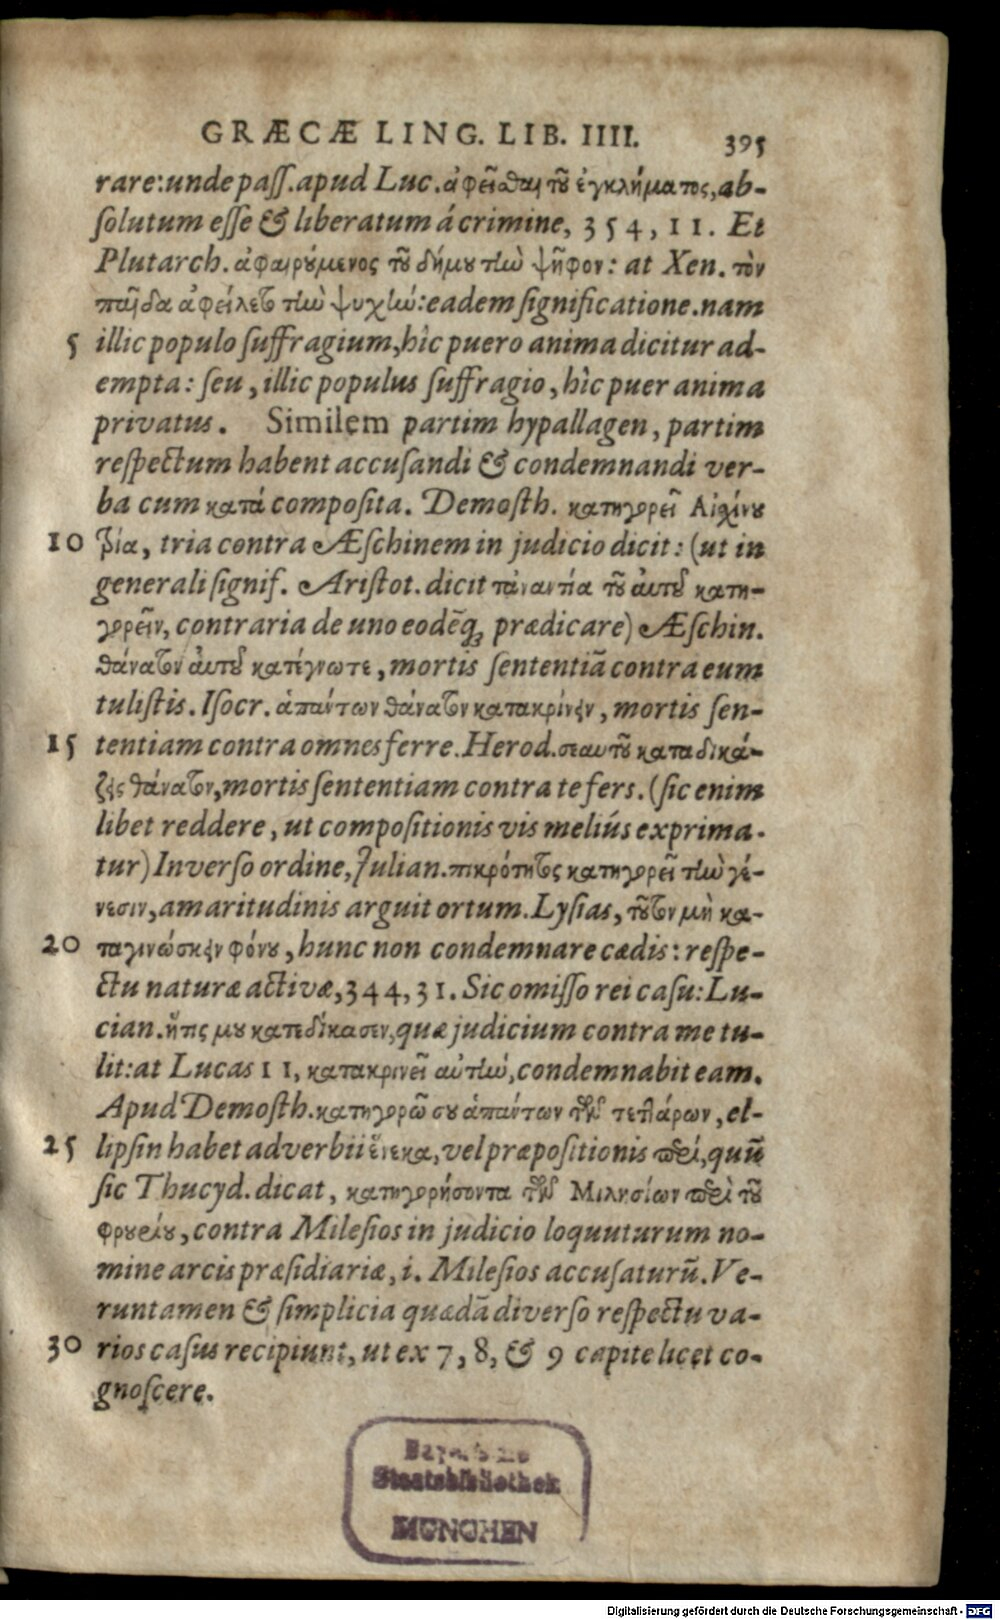 GRÆCÆ LING. LIB. IIII. 395
rare: unde pass. apud Luc. ἀφεῖσθαι τοῦ ἐγκλήματος, ab-
solutum esse & liberatum á crimine, 354, 11. Et
Plutarch. ἀφαιρούμενος τοῦ δήμου τὴν ψῆφον: at Xen. τὸν
παῖδα ἀφείλετο τὴν ψυχὴν: eadem significatione. nam
5 illic populo suffragium, hîc puero anima dicitur ad-
empta: seu, illic populus suffragio, hîc puer anima
privatus. Similem partim hypallagen, partim
respectum habent accusandi & condemnandi ver-
ba cum κατά composita. Demosth. κατηγορεῖ Αἰσχίνου
10 τρία, tria contra Æschinem in judicio dicit: (ut in
generali signif. Aristot. dicit τἀναντία τοῦ αὐτοῦ κατη-
γορεῖν, contraria de uno eodēq; prædicare) Æschin.
θάνατον αὐτοῦ κατέγνωτε, mortis sententiā contra eum
tulistis. Isocr. ἁπάντων θάνατον κατακρίνειν, mortis sen-
15 tentiam contra omnes ferre. Herod. σεαυτοῦ καταδικά-
ζεις θάνατον, mortis sententiam contra te fers. (sic enim
libet reddere, ut compositionis vis meliús exprima-
tur) Inverso ordine, Julian. πικρότητος κατηγορεῖ τὴν γέ-
νεσιν, amaritudinis arguit ortum. Lysias, τοῦτον μὴ κα-
20 ταγινώσκειν φόνου, hunc non condemnare cædis: respe-
ctu naturæ activæ, 344, 31. Sic omisso rei casu: Lu-
cian. ἥτις μου κατεδίκασεν, quæ judicium contra me tu-
lit: at Lucas 11, κατακρινεῖ αὐτὴν, condemnabit eam.
Apud Demosth. κατηγορῶ σου ἁπάντων τῶν τεττάρων, el-
25 lipsin habet adverbii ἕνεκα, vel præpositionis περί, quū
sic Thucyd. dicat, κατηγορήσοντα τῶν Μιλησίων περὶ τοῦ
φρουρίου, contra Milesios in judicio loquuturum no-
mine arcis præsidiariæ, i. Milesios accusaturū. Ve-
runtamen & simplicia quædā diverso respectu va-
30 rios casus recipiunt, ut ex 7, 8, & 9 capite licet co-
gnoscere.
Bayerische
Staatsbibliothek
MÜNCHEN
Digitalisierung gefördert durch die Deutsche Forschungsgemeinschaft - DFG